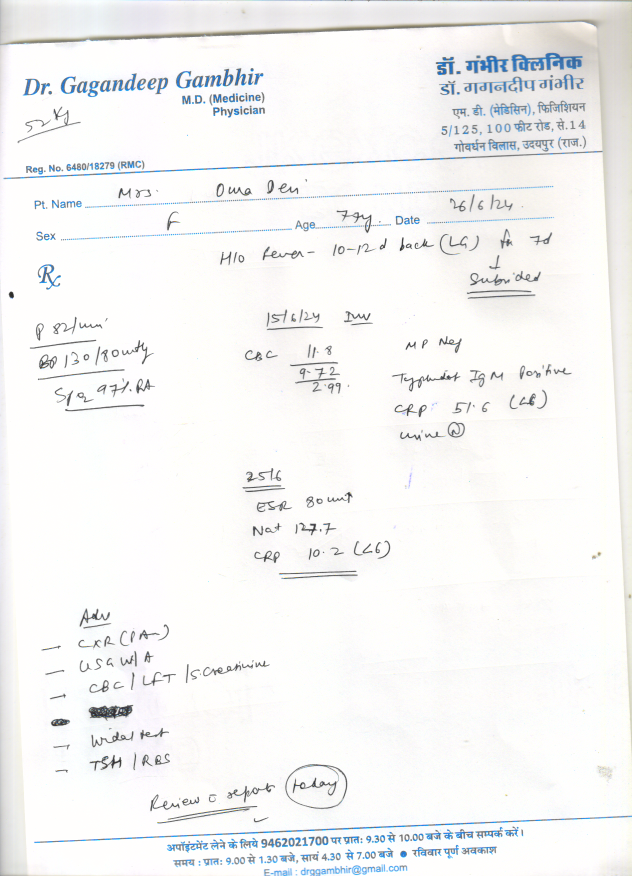 Dr. Gagandeep Gambhir
M.D. (Medicine)
Physician
52 Kg
Reg. No. 6480/18279 (RMC)
डॉ. गंभीर क्लिनिक
डॉ. गगनदीप गंभीर
एम. डी. (मेडिसिन), फिजिशियन
5/125, 100 फीट रोड, से.14
गोवर्धन विलास, उदयपुर (राज.)
Pt. Name Mrs. Oma Devi
Sex F Age 77y Date 26/6/24
H/o Fever - 10-12 d back (LG) for 7d
↓
Subsided
Rx
P 82/min
BP 130/80 mmHg
SpO2 97% RA
15/6/24 Inv
CBC 11.8
9.72
2.99
MP Neg
Typhidot IgM Positive
CRP 51.6 (<6)
urine (N)
25/6
ESR 80 mm↑
Na+ 127.7
CRP 10.2 (<6)
Adv
→ CXR (PA)
→ USG W/A
→ CBC / LFT / S. Creatinine
→ Widal test
→ TSH / RBS
Review c reports today
अपॉइंटमेंट लेने के लिये 9462021700 पर प्रातः 9.30 से 10.00 बजे के बीच सम्पर्क करें।
समय : प्रातः 9.00 से 1.30 बजे, सायं 4.30 से 7.00 बजे ● रविवार पूर्ण अवकाश
E-mail : drggambhir@gmail.com